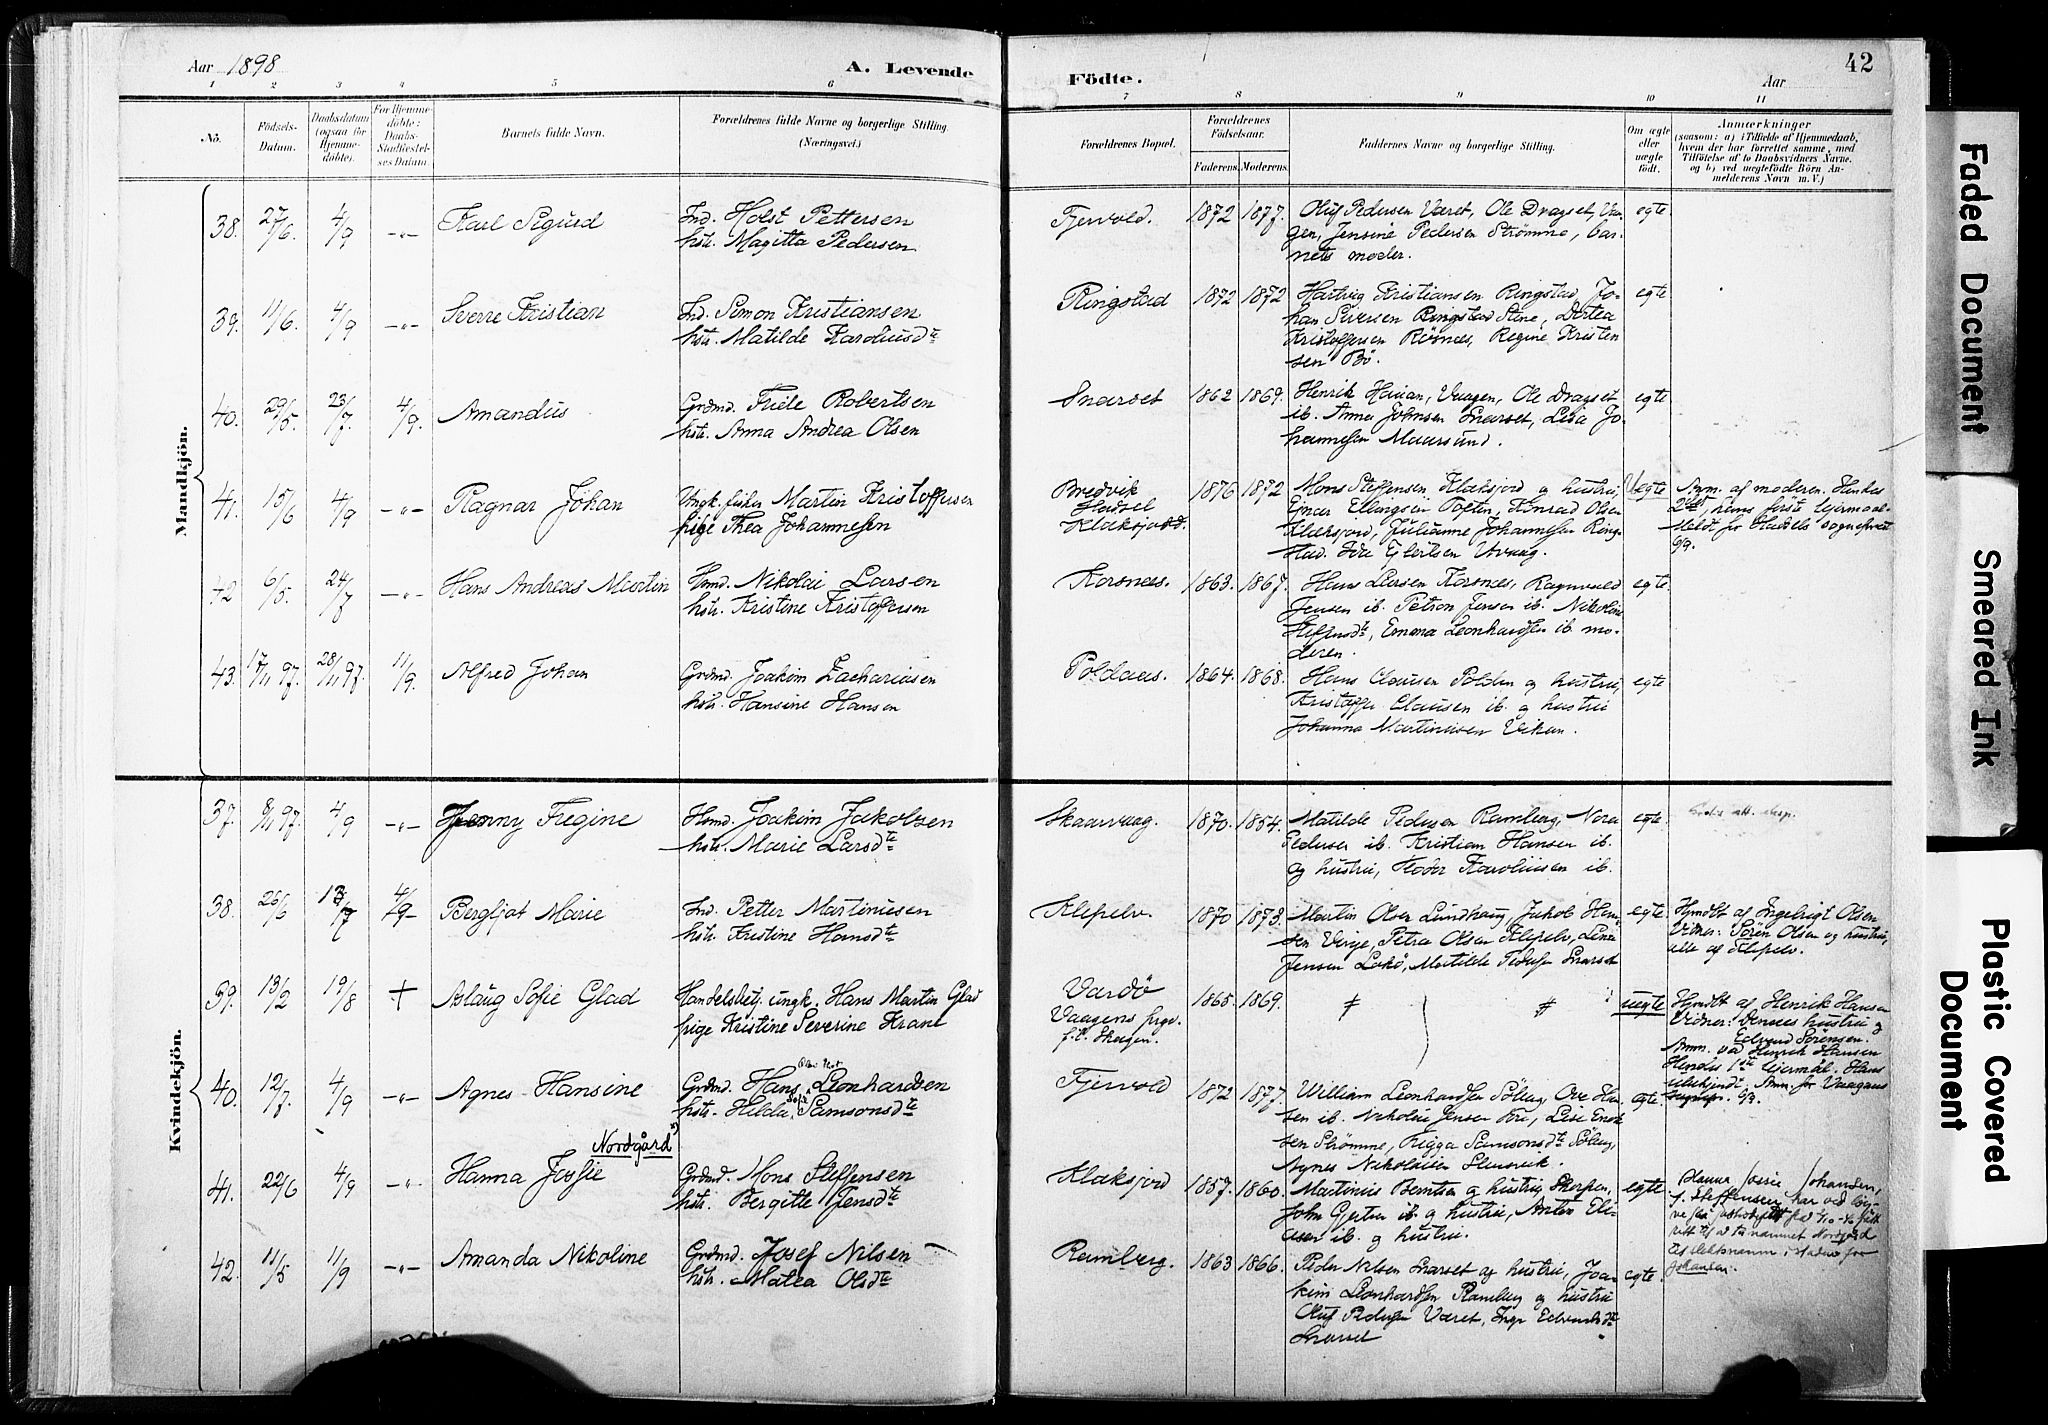 Aar 1898
A. Levende
Födte.
Aar
42
1 2 3 4 5 6 7 8 9 10 11
No.
Födsels-
Datum.
Daabsdatum
(ogsaa for
Hjemme-
döbte).
For Hjemme-
döbte:
Daabs-
Stadfæstel-
ses Datum.
Barnets fulde Navn.
Forældrenes fulde Navne og borgerlige Stilling.
(Næringsvei.)
Forældrenes Bopæl.
Forældrenes
Födselsaar.
Faderens. Moderens.
Faddernes Navne og borgerlige Stilling.
Om ægte
eller
uægte
födt.
Anmærkninger
(saasom: a) i Tilfælde af Hjemmedaab,
hvem der har forrettet samme, med
Tilföielse af to Daabsvidners Navne,
og b) ved uægtefödte Börn An-
melderens Navn m. V.)
Mandkjön.
38. 27/6. 4/9 -"- Karl Sigurd
Ind. Holst Pettersen
hstr. Magitta Pedersen
Fjervold. 1872 1877.
Oluf Pedersen Været, Ole Dragset, Vaa-
gen, Jensine Pedersen Strömme, bar-
nets moder.
egte
39. 11/6. 4/9 -"- Sverre Kristian
Ind. Simon Kristiansen
hstr. Matilde Karoliusdte
Ringstad 1872 1872
Hartvig Kristiansen Ringstad, Jo-
han Siversen Ringstad Stine, Dortea
Kristoffersen Rösnes, Regine Kristen
sen Bö.
egte
40. 29/5. 23/7. 4/9. Amandus
Grdmd. Thile Robertsen
hstr. Anna Andrea Olsen
Snarset 1862 1869.
Henrik Hansen, Vaagen, Ole Dragset
ib. Anna Johnsen Snarset, Lisa Jo-
hannesen Maarsund.
egte
41. 15/6 4/9 -"- Ragnar Johan
Ungk. fisker Martin Kristoffersen
pige Thea Johannesen
Bredvik
Hadsel
Klaksjord. 1876 1872
Mons Steffensen Klaksjord og hustru,
Ejnar Ellingsen Toften, Konrad Olsen
Klaksjord, Julianne Johannesen Ring-
stad. Ida Ejlertsen Uvaag.
Uegte
Anm. af moderen. Hendes
2det, hans förste leiermaal.
Meldt for Hadsels sogneprest
6/9.
42 6/5. 24/7 -"- Hans Andreas Martin
Hmd. Nikolai Larsen
hstr. Kristine Kristoffersen
Korsnes. 1863. 1867.
Hans Larsen Korsnes, Ragnvald
Jensen ib. Petron Jensen ib. Nikoline
Steffensdte, Emma Leonhardsen ib. mo-
deren.
egte
43. 17/11 97. 28/11 97. 11/9. Alfred Johan
Grdmd. Joakim Zachariasen
hstr. Hansine Hansen
Poldaas. 1864. 1868.
Hans Clausen Polden og hustru,
Kristoffer Clausen ib. og hustru
Johanna Martinusen Vikan.
egte
Kvindekjön.
37. 8/11 97. 4/9 -"- Jenny Fregine
Hmd. Joakim Jakobsen
hstr. Marie Larsdte
Skaarvaag. 1870. 1854.
Matilde Pedersen Ramberg, Nora
Pedersen ib. Kristian Hansen ib.
og hustru, Hodor Karoliusen ib.
egte.
38. 26/6 13/7 4/9 Bergljot Marie
Ind. Petter Martinusen
hstr. Kristine Hansdte
Klepelv. 1870 1873.
Martin Olsen Lundhaug, Jakob Han-
sen Vinje, Petra Olsen Klepelv, Lina
Jensen Lakö, Matilde Pedersen Snarset
egte.
Hjmdbt af Ingebrigt Olsen
Vidner: Sören Olsen og hustru,
alle af Klepelv.
39. 13/2 19/8 + Aslaug Sofie Glad
Handelsbetj. ungk. Hans Martin Glad
pige Kristine Severine Krane
Vardö
Vaagens prgd.
f.t. Skogen. 1865. 1869.
uegte
Hjmdbt af Henrik Hansen
Vidner: Dennes hustru og
Edvard Sörensen.
Anm. ved Henrik Hansen
Hendes 1ste leiermål. Hans
ubekjendt. Anm. for Vaagans
sognepr. 6/9.
40. 12/7. 4/9 -"- Agnes Hansine
Grdmd. Hans Leonhardsen
hstr. Hilda Sofie Samsonsdte
Fjervold 1872 1877.
William Leonhardsen Söberg, Ove Han-
sen ib. Nikolai Jensen Fore, Lise Enok
sen Strömme, Rigga Samsonsdte Söberg,
Agnes Nikolaisen Slensvik.
egte.
41. 22/6 4/9 -"- Hanna Jossie Nordgård x)
Grdmd. Mons Steffensen
hstr. Bergitte Jensdte
Klaksjord 1857. 1860.
Martinus Berntsen og hustru Skorpen,
John Gjertsen ib. og hustru, Anton Eli-
asen ib. og hustru.
egte
Hanna Jossie Johansen,
f. Steffensen har ved
rett til å ta navnet Nordgård
til slektsnavn i stedet for
Johansen.
42. 11/5 11/9 -"- Amanda Nikoline
Grdmd. Josef Nilsen
hstr. Matea Olsdte
Ramberg. 1863 1866.
Peder Nilsen Snarset og hustru, Joa-
kim Leonhardsen Ramberg og hustru
Oluf Pedersen Været, Inga Edvardsdte
Snarset
egte.
Faded Document
Smeared Ink
Plastic Covered
Document